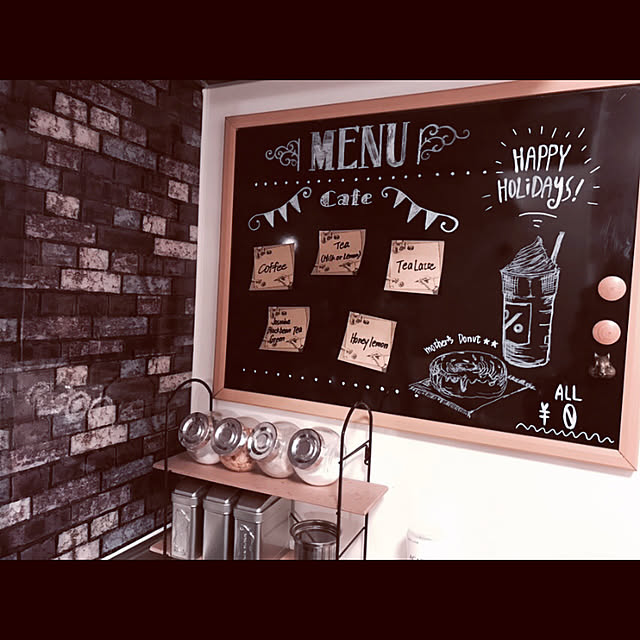 MENU
HAPPY
HOLiDAYS!
Cafe
Coffee
Tea
(Milk or Lemon)
Tea Latte
Jasmine
Black bean Tea
Green
Honey lemon
mother's Donut ★★
%
ALL
¥ 0